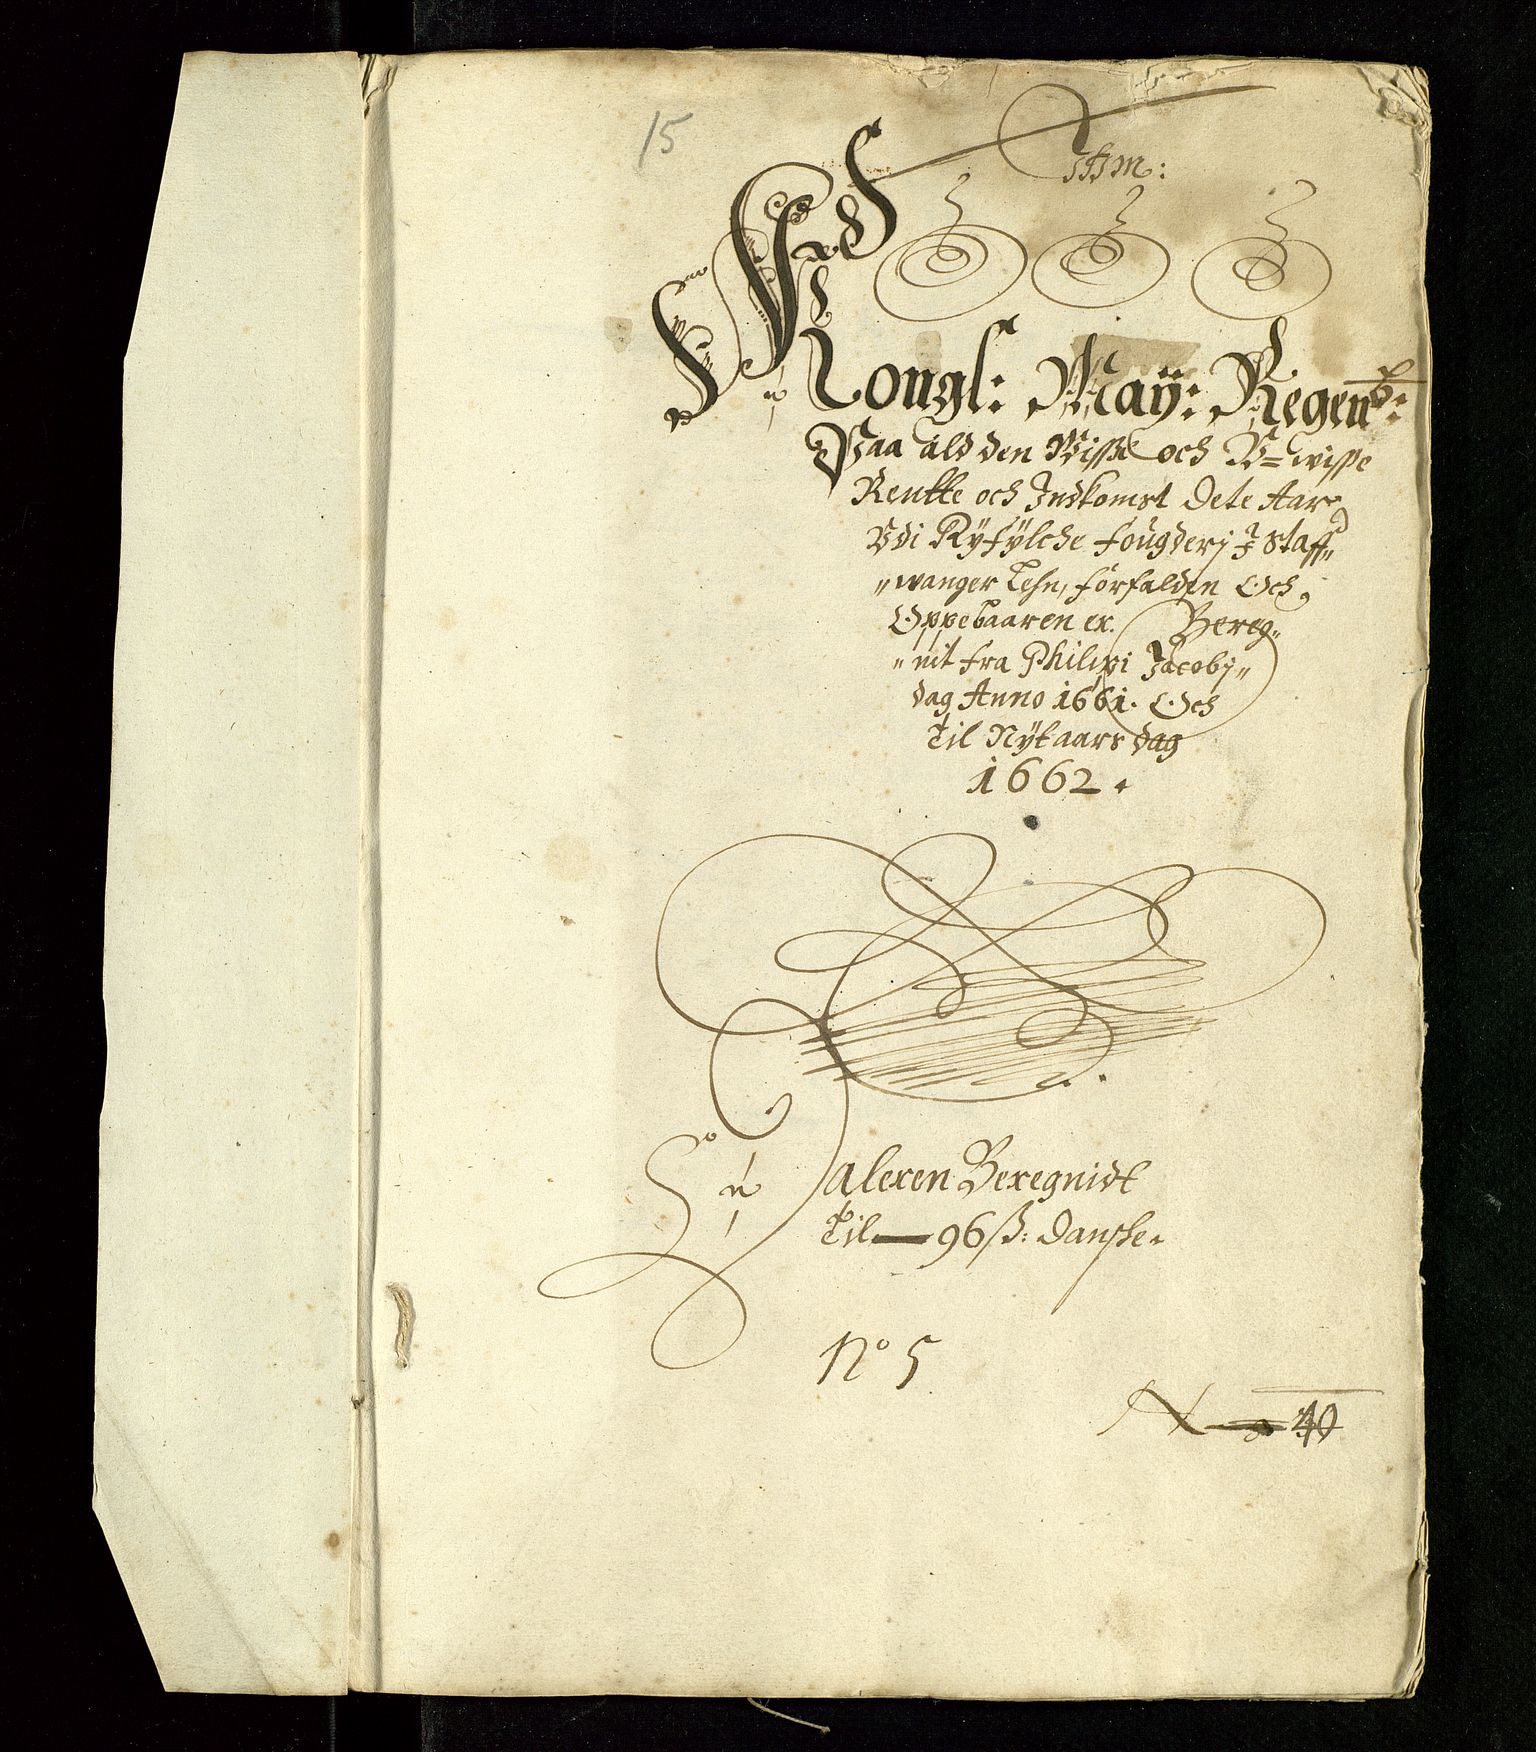 15
Kongl: Maÿ: Regensb:
Paa ald den Wisse och V=wisse
Rentte och Indkomst dete Aar
Vdi Rÿfÿlche fougderj I Staff„
„wanger Lehn, forfalden Och
Oppebaaren er. Bereg„
„nit fra Philipi Jacobj„
dag Anno 1661. Och
Til Nÿtaars dag
1662.
Daleren Beregnidt
Til — 96 ß: danske.
No 5
N — 40